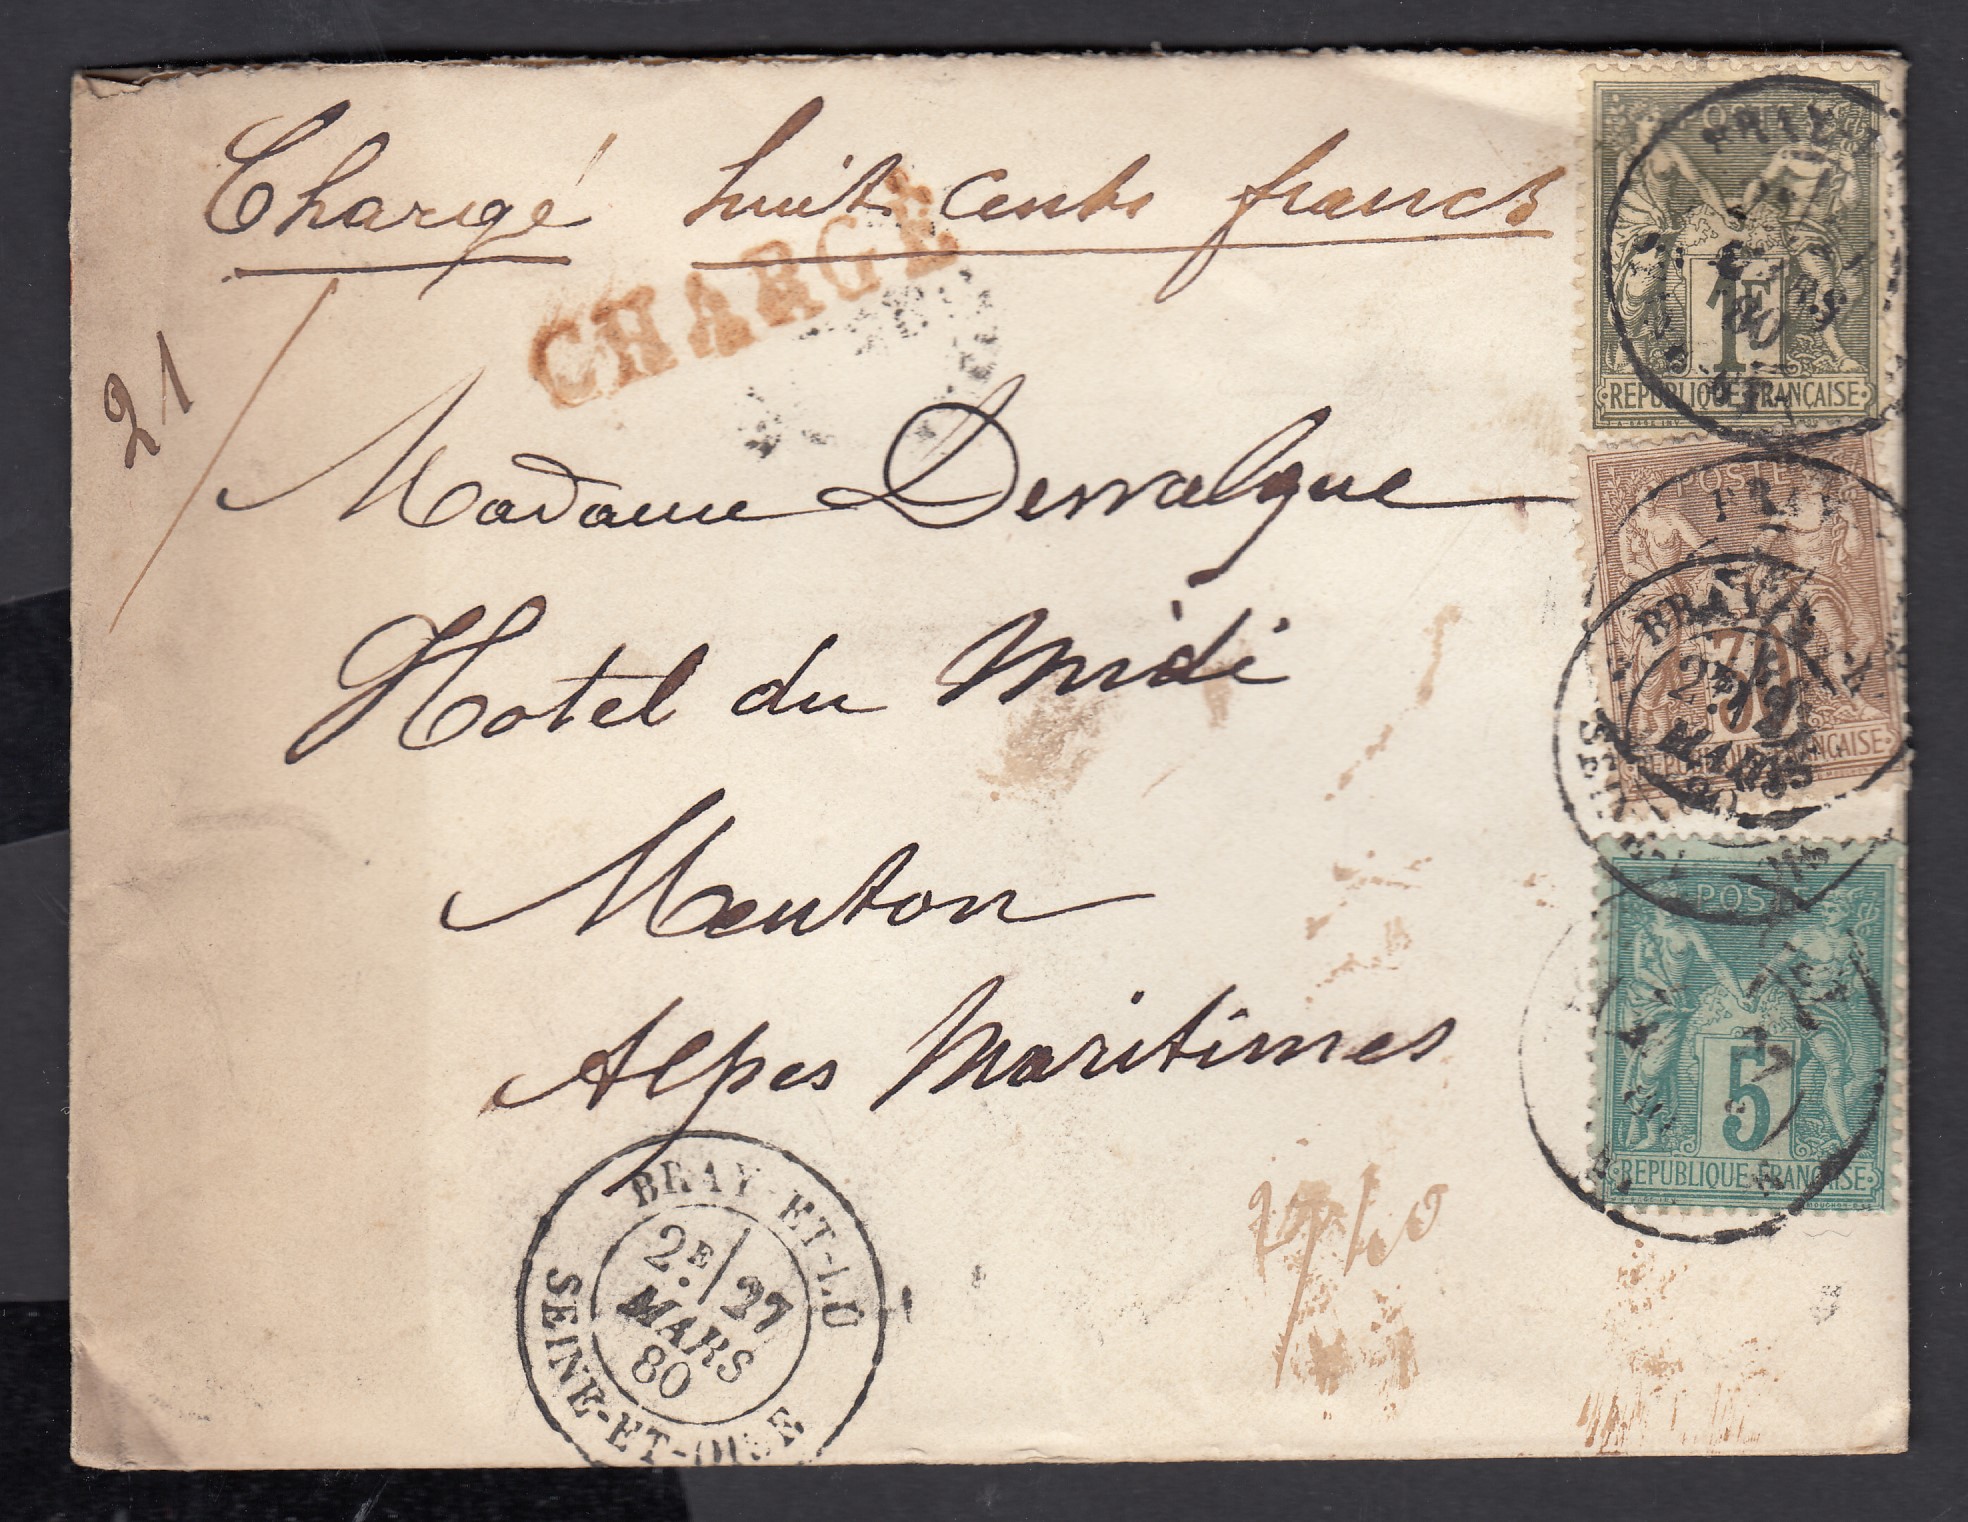 Chargé huit cents francs
CHARGÉ
21
Madame
Hotel du Midi
Menton
Alpes Maritimes
BRAY-ET-LU
2E 27
MARS
80
SEINE-ET-OISE
POSTE
1F
REPUBLIQUE FRANÇAISE
POSTE
30
REPUBLIQUE FRANÇAISE
BRAY
2E
MARS
80
POSTE
5
REPUBLIQUE FRANÇAISE